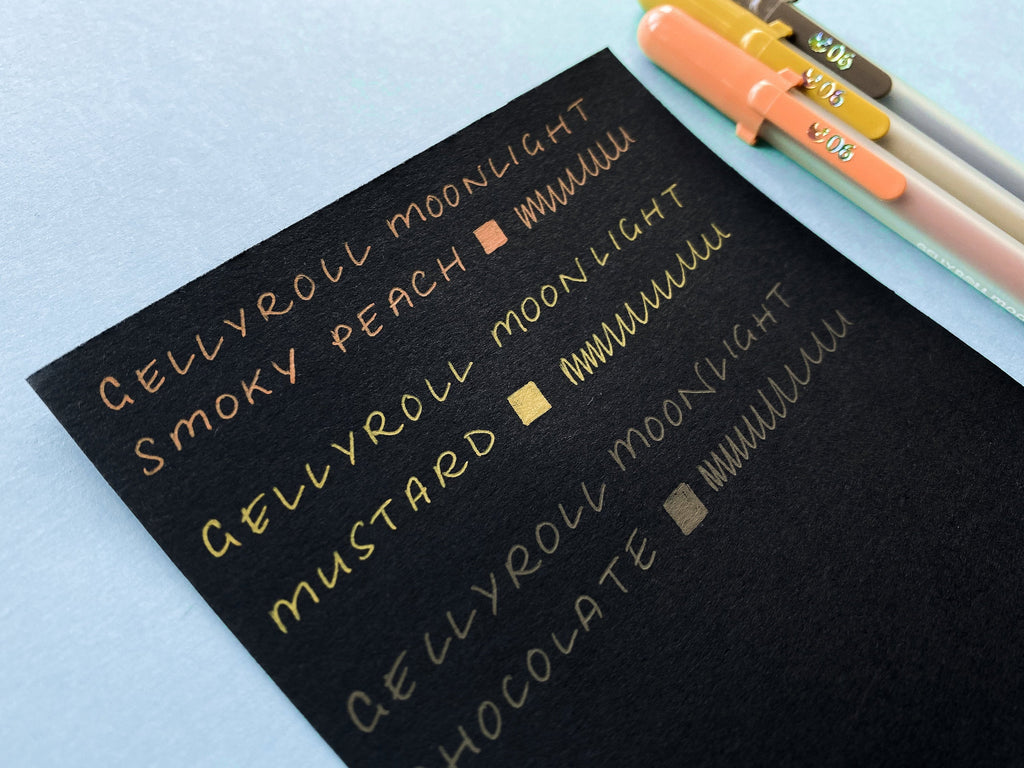 GELLYROLL MOONLIGHT
SMOKY PEACH
GELLYROLL MOONLIGHT
MUSTARD
GELLYROLL MOONLIGHT
CHOCOLATE
06
06
06
GELLYROLL